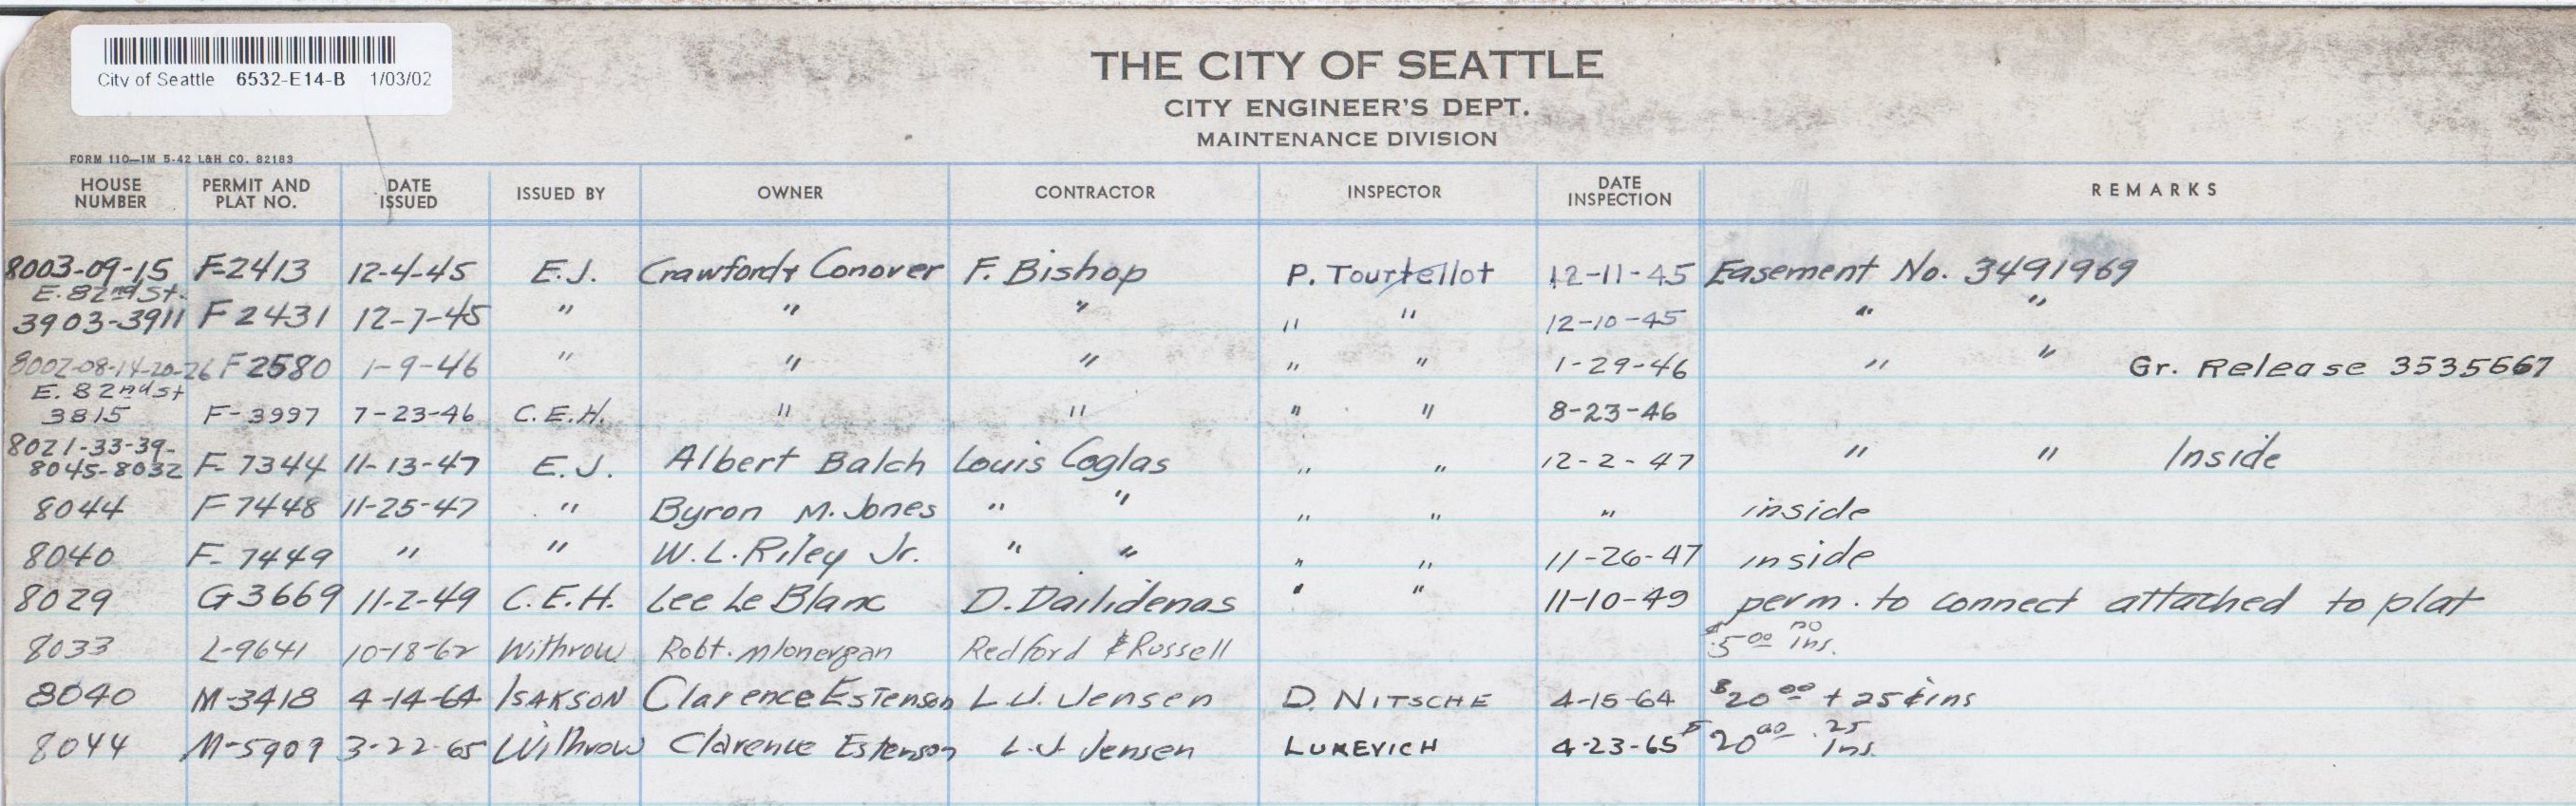 City of Seattle 6532-E14-B 1/03/02
THE CITY OF SEATTLE
CITY ENGINEER'S DEPT.
MAINTENANCE DIVISION
FORM 110—1M 5-42 L&H CO. 82183
HOUSE NUMBER PERMIT AND PLAT NO. DATE ISSUED ISSUED BY OWNER CONTRACTOR INSPECTOR DATE INSPECTION REMARKS
8003-09-15 F-2413 12-4-45 E.J. Crawford & Conover F. Bishop P. Tourtellot 12-11-45 Easement No. 3491969
E. 82nd St.
3903-3911 F 2431 12-7-45 " " " " " 12-10-45 " "
8002-08-14-20-26 F 2580 1-9-46 " " " " " 1-29-46 " " Gr. Release 3535667
E. 82nd St
3815 F-3997 7-23-46 C.E.H. " " " " 8-23-46
8021-33-39-
8045-8032 F-7344 11-13-47 E.J. Albert Balch Louis Coglas " " 12-2-47 " " Inside
8044 F 7448 11-25-47 " Byron M. Jones " " " " " inside
8040 F-7449 " " W.L. Riley Jr. " " " " 11-26-47 inside
8029 G3669 11-2-49 C.E.H. Lee Le Blanc D. Dailidenas " " 11-10-49 perm. to connect attached to plat
8033 L-9641 10-18-62 Withrow Robt. Redford & Russell $5.00 no ins.
8040 M-3418 4-14-64 ISAKSON Clarence Estenson L.J. Jensen D. NITSCHE 4-15-64 $20.00 + 25¢ ins
8044 M-5909 3-22-65 Withrow Clarence Estenson L.J. Jensen LUKEVICH 4-23-65 $20.00 .25 Ins.